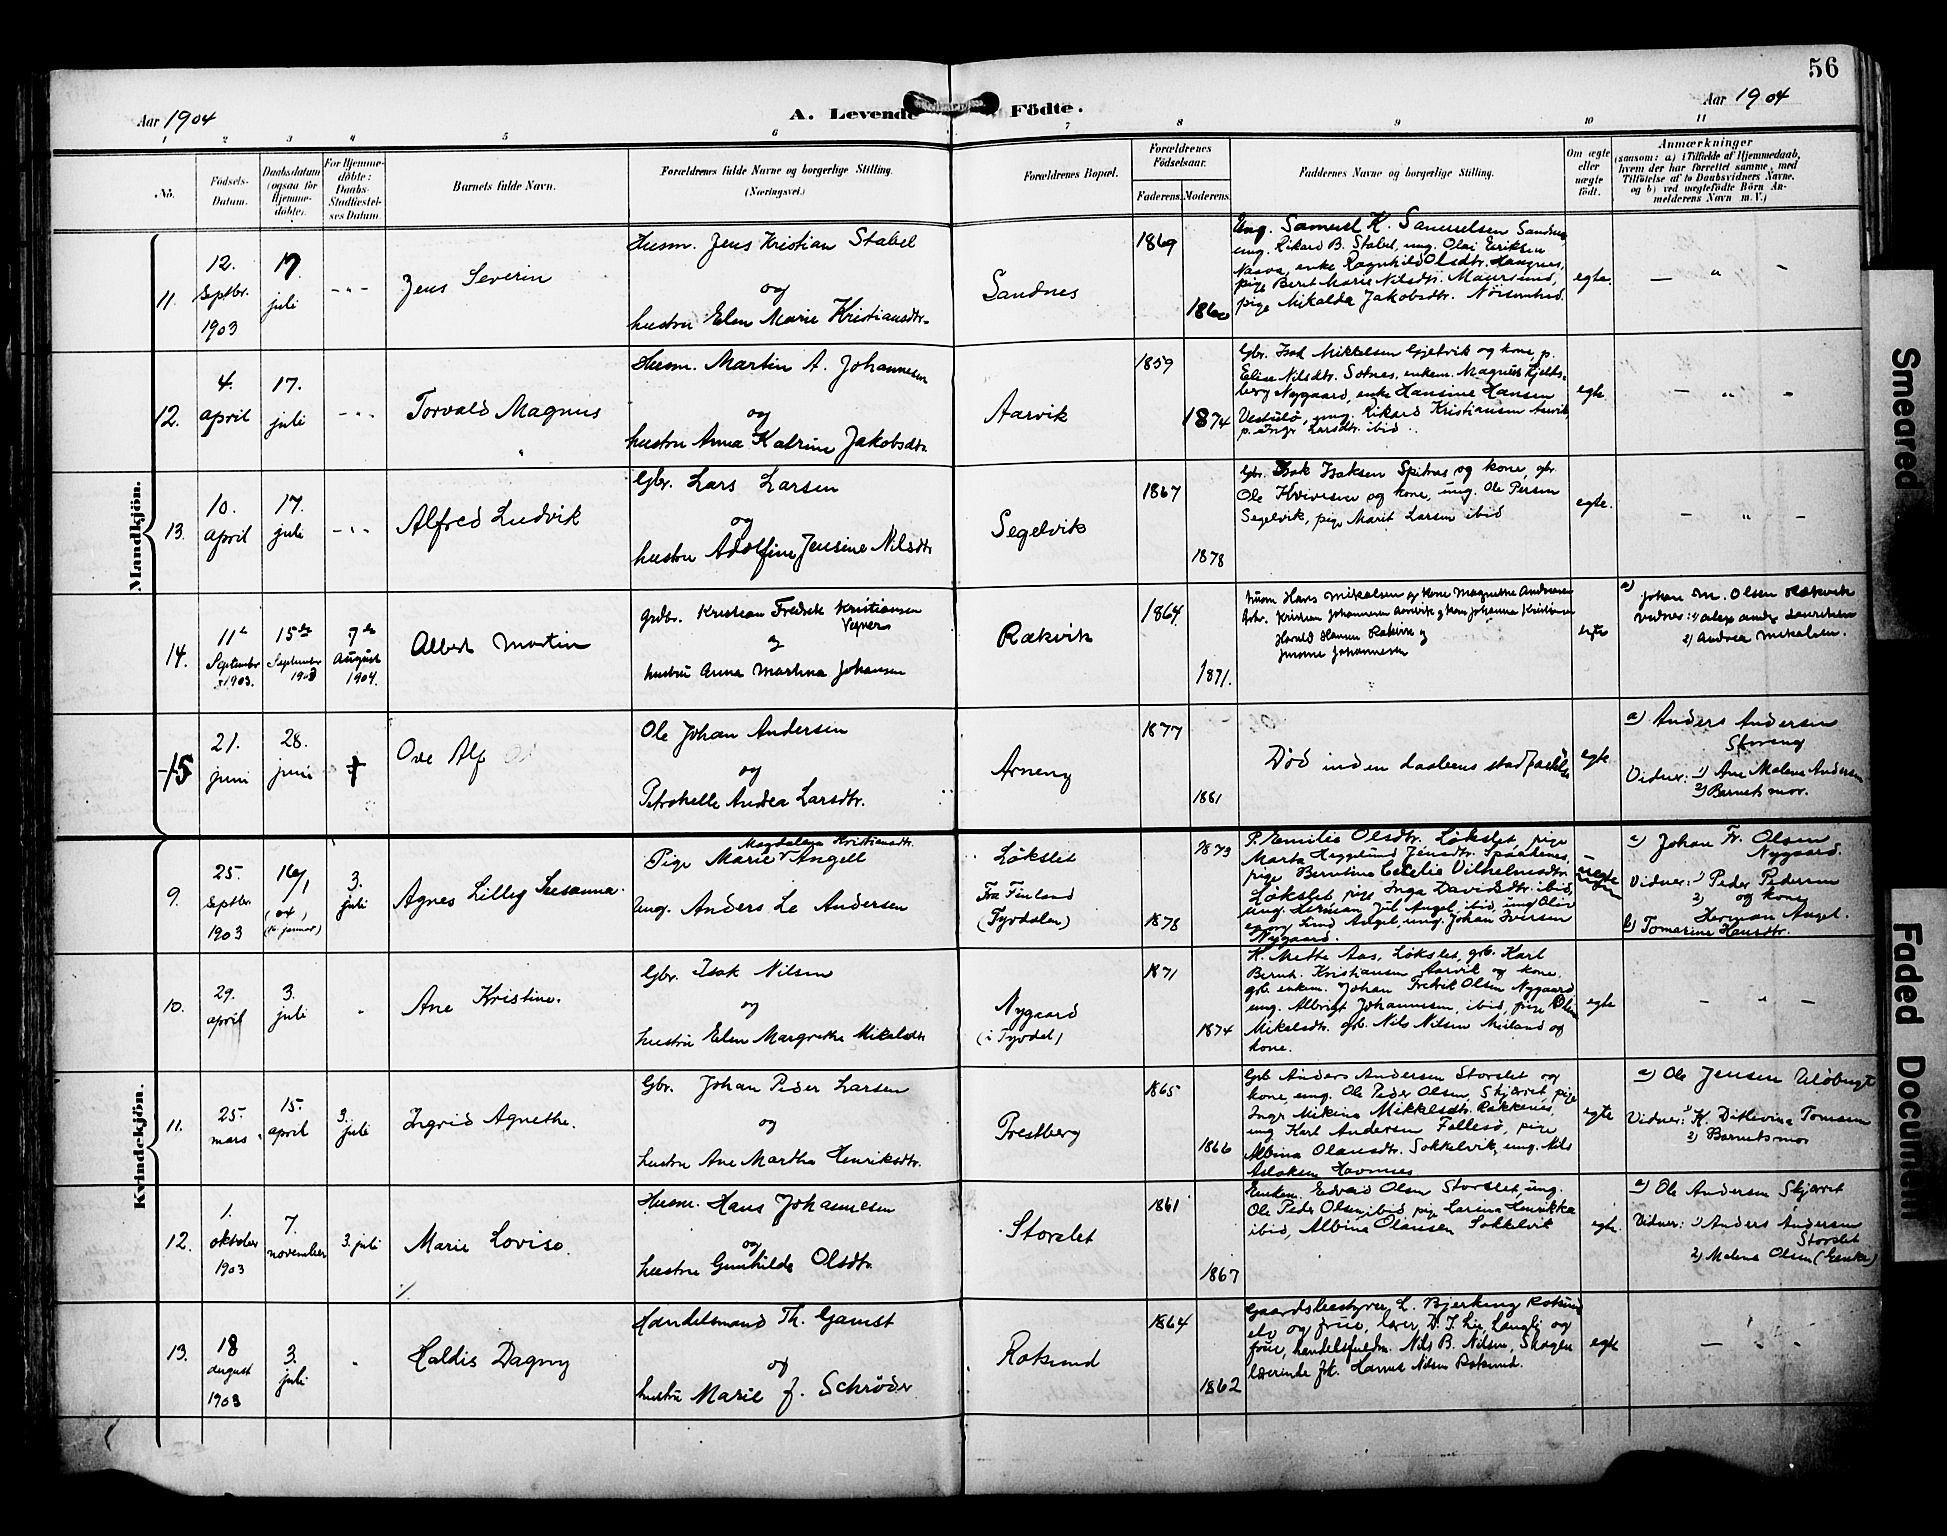 56
Aar 1904
A. Levende Födte.
Aar 1904
1 2 3 4 5 6 7 8 9 10 11
No.
Födsels-
Datum.
Daabsdatum
(ogsaa for
Hjemme-
döbte).
For Hjemme-
döbte:
Daabs-
Stadfæstel-
ses Datum
Barnets fulde Navn.
Forældrenes fulde Navne og borgerlige Stilling.
(Næringsvei.)
Forældrenes Bopæl.
Forældrenes
Födselsaar.
Faderens. Moderens.
Faddernes Navne og borgerlige Stilling.
Om ægte
eller
uægte
födt.
Anmærkninger
(saasom: a) i Tilfælde af Hjemmedaab,
hvem der har forrettet samme, med
Tilföielse af to Daabsvidners Navne,
og b) ved uægtefödte Börn An-
melderens Navn m. V.)
Mandkjön.
11.
12.
Septbr.
1903
17.
juli
- " -
Jens Severin
Husm. Jens Kristian Stabel
og
hustru Elen Marie Kristiansdtr.
Sandnes
1869
1860
Ung. Samuel K. Samuelsen Sandnes
ung. Rikard B. Stabel, ung. Olai Eriksen
enke Ragnhild Olsdtr. Haugnes,
pige Berit Marie Nilsdtr. Maursund,
pige Mikalda Jakobsdtr.
egte.
— " -
12.
4.
april
17.
juli
- " -
Torvald Magnus
Husm. Martin A. Johannesen
og
hustru Anna Katrine Jakobsdtr.
Aarvik
1859
1874
Gbr. Isak Mikkelsen Gjelvik og kone, p.
Elise Nilsdtr. Sotnes, enkem. Magnus Kjelds-
berg Nygaard, enke Hansine Hansen
ung. Rikard Kristiansen Aarvik
Larsdtr. ibid.
egte
- " -
13.
10.
april
17.
juli
- " -
Alfred Ludvik
Gbr. Lars Larsen
og
hustru Adolfine Jensine Nilsdtr.
Segelvik
1867
1878
Gbr. Isak Isaksen Spitnes og kone, gbr.
Ole og kone, ung. Ole Persen
Segelvik, pige Marit Larsen ibid
egte.
- " -
14.
11te
September
1903.
15de
September
1903
7de
August
1904.
Albert Martin
grdbr. Kristian Fredrik Kristiansen
Vegner
og
hustru Anna Martina Johansen
Rakvik
1864
1871.
husm Hans Mikalsen og kone Magnethe Andreasen
Kristian Johannesen Aarvik og kone Johanna Kristiansen
Harald Hansen Rakvik og
Johannesen
egte
a) Johan M. Olsen Rakvik
vidner: 1) Lauritsen
2) Andrea Mikalsen.
15
21.
juni
28.
juni
†
Ove Alf
Ole Johan Andersen
og
Petrohelle Andrea Larsdtr.
Arneng
1877
1881
Död inden daabens stadfæstelse
egte
a) Anders Andersen
Storeng
Vidner: 1) Ane Malena Andersen
2) Barnets mor.
Kvindekjön.
9.
25.
Septbr.
1903
16/1
(04)
(16 januar)
3.
juli
Agnes Lilly Susanna.
Magdalena Kristiansdtr.
Pige Marie Angell
Ung. Anders Le Andersen
Løkslet
Fra Finland
(Tyvdalen)
1873
1878
P. Emilie Olsdtr. Løkslet, pige
Marta Hegglund Jensdtr. Spaaknes,
pige Berntine Cecelia Vilhelmsdtr.
Løkslet, pige Inga Davidsdtr. ibid,
ung. Herman Jul Angel, ibid, ung Oliv
Angel, ung. Johan Iversen
Nygaard.
uegte
a) Johan Fr. Olsen
Nygaard.
Vidner: 1) Peder Pedersen
2) og kone
Herman Angel.
b) Tomarine Hansdtr.
10.
29.
april
3.
juli
"
Ane Kristine.
Gbr. Isak Nilsen
og
hustru Elen Margrethe Mikelsdtr.
Nygaard
(i Tyvdal)
1871
1874
K. Mette Aas, Løkslet, grb. Karl
Bernh. Kristiansen Aarvik og kone.
grb. enkem. Johan Fredrik Olsen Nygaard
ung. Albrigt Johannesen, ibid, pige
Mikelsdtr. grb. Nils Nilsen Meiland og
kone.
egte
- " -
11.
25.
mars.
15.
april
3.
juli
Ingrid Agnethe.
Gbr. Johan Peder Larsen
og
hustru Ane Martha Henriksdtr.
Prestberg
1865
1866
Grb Anders Andersen Storslet og
kone, ung. Ole Peder Olsen, Skjæret, pige
Inger Mikina Mikkelsdtr. Rakkenes,
ung Karl Andersen Follesø, pige
Albina Olausdtr. Sokkelvik, ung. Nils
Aslaksen Havnnes
egte
a) Ole Jensen Uløbugt
Vidner: 1) K. Ditlevine Tomasen
2) Barnets mor
12.
1.
oktober
1903
7.
november
3. juli
Marie Lovise.
Husm. Hans Johannesen
og
hustru Gunhilde Olsdtr.
Storslet
1861
1867
Enkem. Edvard Olsen Storslet, ung.
Ole Peder Olsen ibid, pige Larina Henrikka
ibid, Albina Olausen Sokkelvik
egte
a) Ole Andersen Skjæret
Vidner: 1) Anders Andersen
Storslet
2) Malena Olsen (Enke)
13.
18
august
1903
3.
juli
"
Haldis Dagny
Handelsmand Th. Gamst
og
hustru Marie J. Schrøder
Rotsund
1864
1862
Gaardsbestyrer L. Bjerkeng Rotsund
elv og frue, lærer D. J. Lie, Langli og
frue, handelsfuldm. Nils B. Nilsen, Skogen
lærerinde frk. Hanna Nilsen Rotsund.
egte
— " -
Smeared
Faded Document